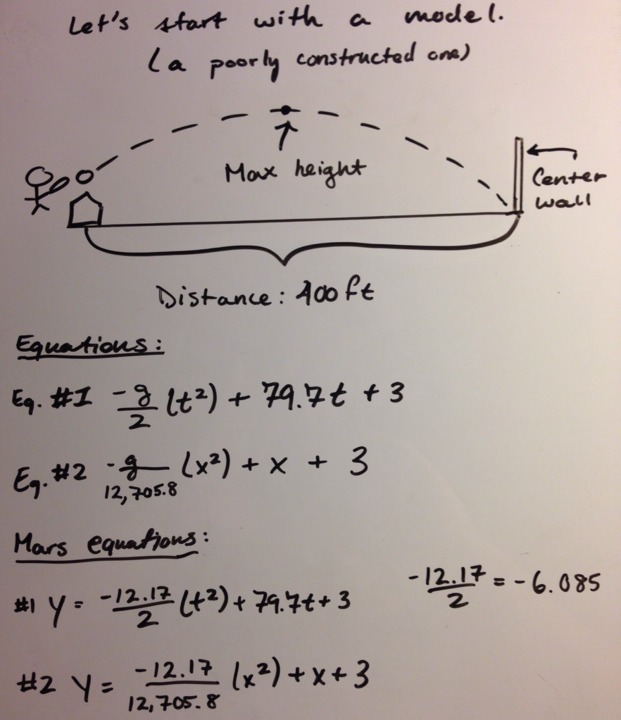 Let's start with a model.
(a poorly constructed one)
Max height
Center
wall
Distance: 400 ft
Equations:
Eq. #1 -g/2 (t²) + 79.7t + 3
Eq. #2 -g/12,705.8 (x²) + x + 3
Mars equations:
#1 Y = -12.17/2 (t²) + 79.7t + 3
-12.17/2 = -6.085
#2 Y = -12.17/12,705.8 (x²) + x + 3